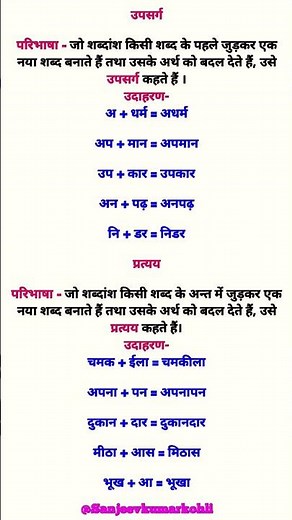 उपसर्ग
परिभाषा - जो शब्दांश किसी शब्द के पहले जुड़कर एक
नया शब्द बनाते हैं तथा उसके अर्थ को बदल देते हैं, उसे
उपसर्ग कहते हैं ।
उदाहरण-
अ + धर्म = अधर्म
अप + मान = अपमान
उप + कार = उपकार
अन + पढ़ = अनपढ़
नि + डर = निडर
प्रत्यय
परिभाषा - जो शब्दांश किसी शब्द के अन्त में जुड़कर एक
नया शब्द बनाते हैं तथा उसके अर्थ को बदल देते हैं, उसे
प्रत्यय कहते हैं।
उदाहरण-
चमक + ईला = चमकीला
अपना + पन = अपनापन
दुकान + दार = दुकानदार
मीठा + आस = मिठास
भूख + आ = भूखा
@Sanjeevkumarkohli